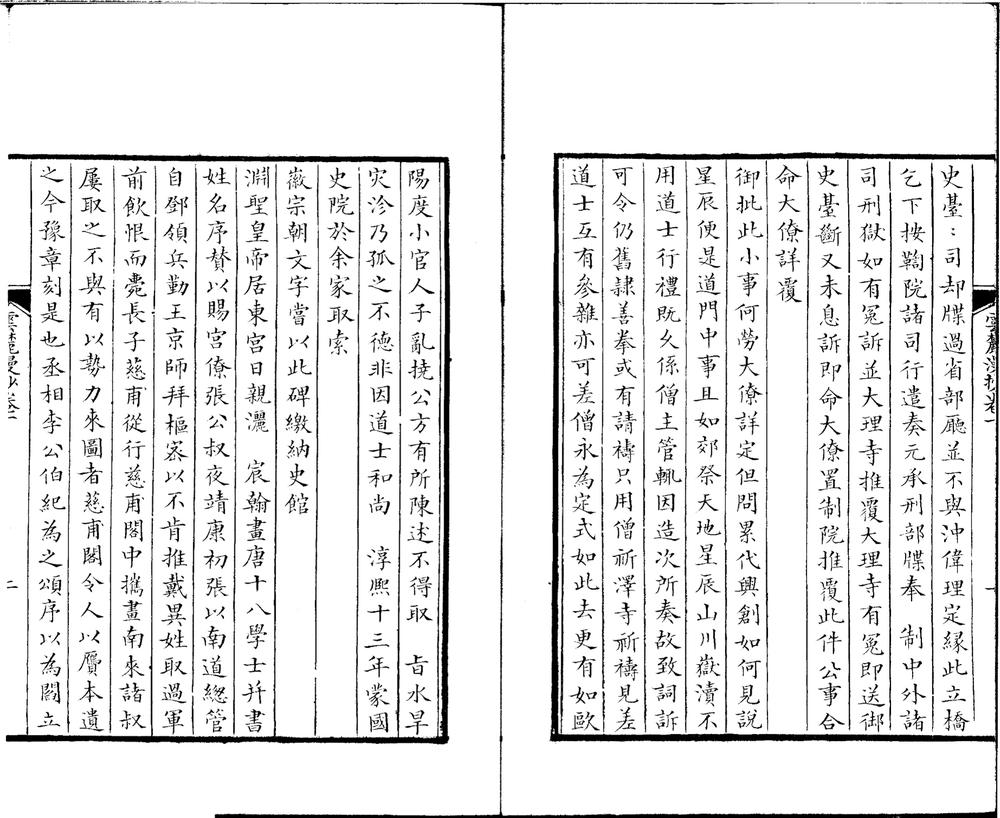 史臺〻司却牒過省部廳並不與沖偉理定緣此立橋
乞下按鞫院諸司行遣奏元承刑部牒奉　制中外諸
司刑獄如有冤訴並大理寺推覆大理寺有冤即送御
史臺斷又未息訴即命大僚置制院推覆此件公事合
命大僚詳覆
御批此小事何勞大僚詳定但問累代興創如何見說
星辰便是道門中事且如郊祭天地星辰山川嶽瀆不
用道士行禮既久係僧主管輒因造次所奏故致詞訴
可令仍舊隸善拳或有請禱只用僧祈澤寺祈禱見差
道士互有參雜亦可差僧永為定式如此去更有如歐
陽度小官人子亂撓公方有所陳述不得取　旨水旱
灾沴乃孤之不德非因道士和尚　淳熙十三年蒙國
史院於余家取索
徽宗朝文字嘗以此碑繳納史館
淵聖皇帝居東宮日親灑　宸翰畫唐十八學士并書
姓名序贊以賜宮僚張公叔夜靖康初張以南道總管
自鄧領兵勤王京師拜樞宻以不肯推戴異姓取過軍
前飲恨而薨長子慈甫從行慈甫閤中攜畫南來諸叔
屢取之不與有以勢力來圖者慈甫閤令人以贗本遺
之今豫章刻是也丞相李公伯紀為之頌序以為閻立
雲麓漫抄卷一
二